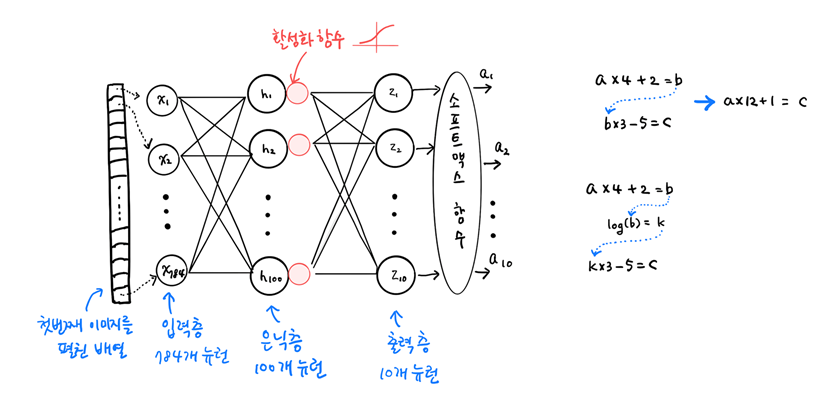 활성화 함수
x₁
x₂
x₇₈₄
h₁
h₂
h₁₀₀
z₁
z₂
z₁₀
소프트맥스 함수
a₁
a₂
a₁₀
첫번째 이미지를
펼친 배열
입력층
784개 뉴런
은닉층
100개 뉴런
출력층
10개 뉴런
a×4+2=b
b×3-5=c
a×12+1=c
a×4+2=b
log(b)=k
k×3-5=c